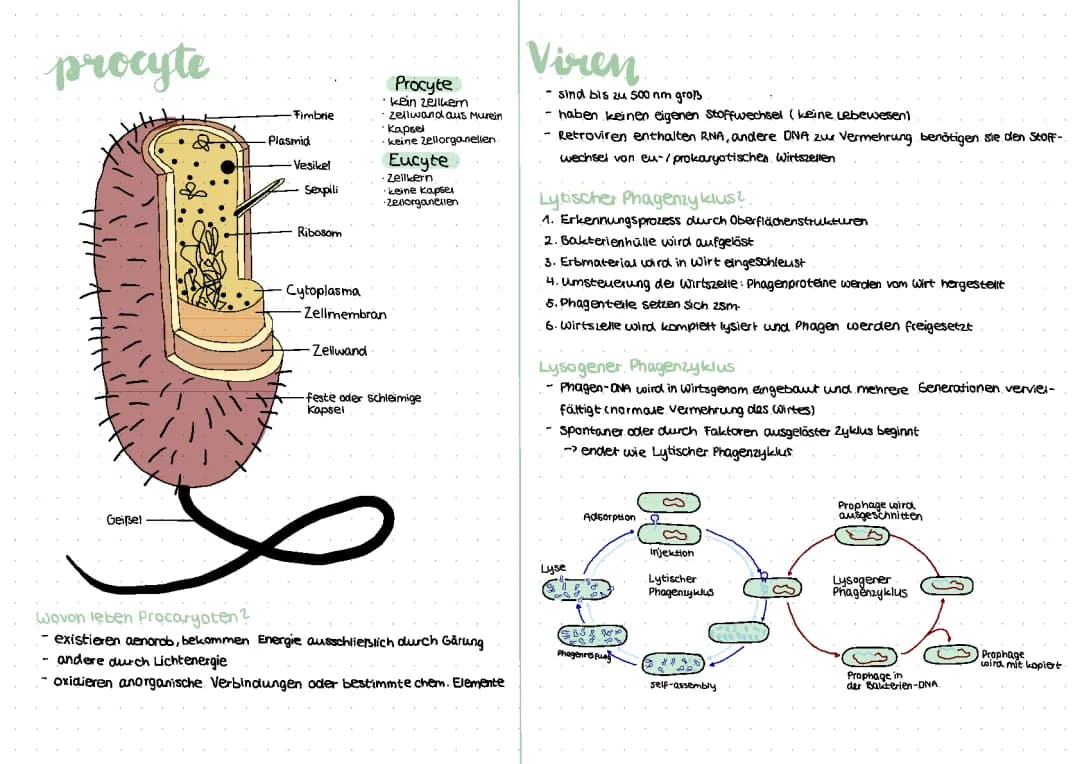 procyte
Procyte
· kein Zellkern
· Zellwand aus Murein
· Kapsel
· keine Zellorganellen
Eucyte
· Zellkern
· keine Kapsel
· Zellorganellen
Fimbrie
Plasmid
Vesikel
Sexpili
Ribosom
Cytoplasma
Zellmembran
Zellwand
feste oder schleimige
Kapsel
Geißel
Wovon leben Procaryoten?
- existieren aenorob, bekommen Energie ausschließlich durch Gärung
- andere durch Lichtenergie
- oxidieren anorganische Verbindungen oder bestimmte chem. Elemente
Viren
- sind bis zu 500 nm groß
- haben keinen eigenen Stoffwechsel (keine Lebewesen)
- Retroviren enthalten RNA, andere DNA zur Vermehrung benötigen sie den Stoff-
wechsel von eu-/prokaryotischen Wirtszellen
Lytischer Phagenzyklus?
1. Erkennungsprozess durch Oberflächenstrukturen
2. Bakterienhülle wird aufgelöst
3. Erbmaterial wird in Wirt eingeschleust
4. Umsteuerung der Wirtszelle: Phagenproteine werden vom Wirt hergestellt
5. Phagenteile setzen sich zsm.
6. Wirtszelle wird komplett lysiert und Phagen werden freigesetzt
Lysogener Phagenzyklus
- Phagen-DNA wird in Wirtsgenom eingebaut und mehrere Generationen verviel-
fältigt (normale Vermehrung des Wirtes)
- Spontaner oder durch Faktoren ausgelöster Zyklus beginnt
-> endet wie Lytischer Phagenzyklus
Adsorption
Injektion
Lyse
Lytischer
Phagenzyklus
Phagenreifung
self-assembly
Prophage wird
ausgeschnitten
Lysogener
Phagenzyklus
Prophage
wird mit kopiert
Prophage in
der Bakterien-DNA